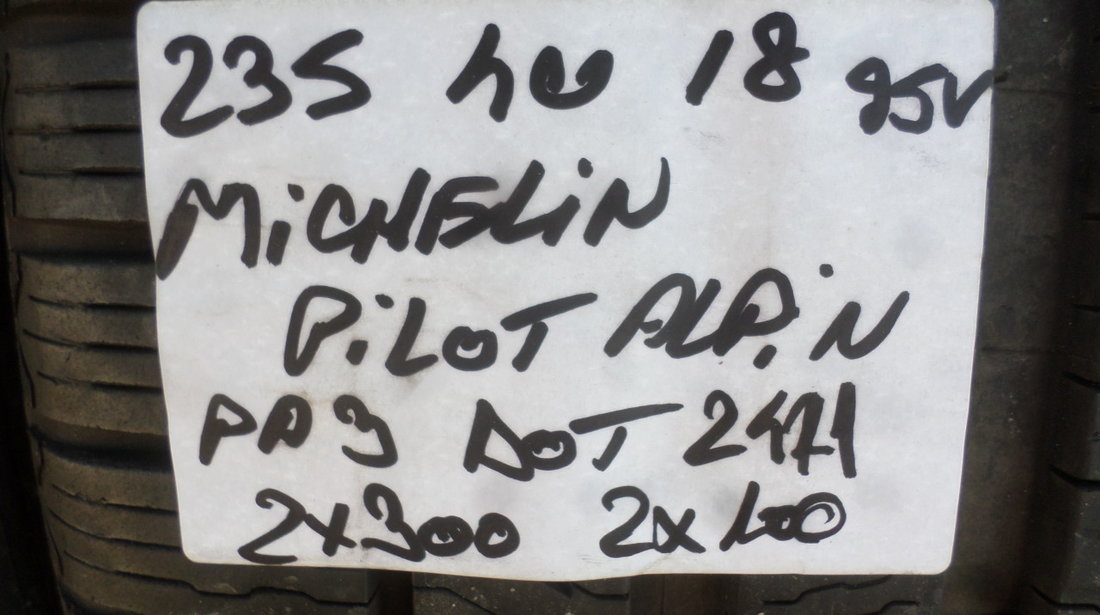 235 40 18 95V
MiCHELiN
PiLOT ALPiN
PA3 DOT 2411
2x300 2x400